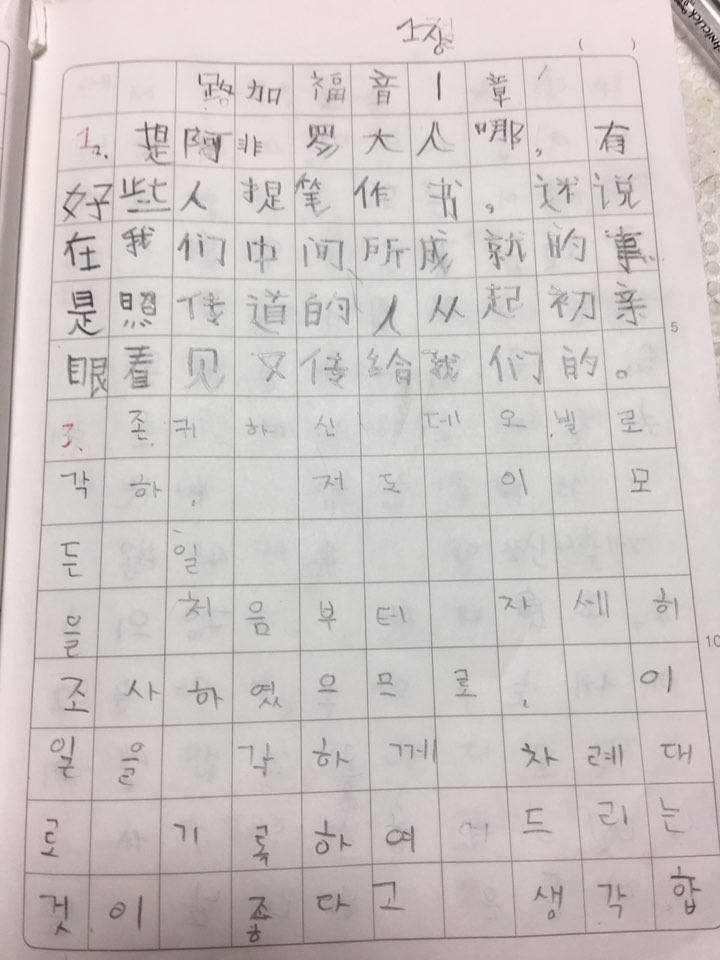 1장
( )
路加 福音 1 章
1. 2. 提阿非罗大人哪，有
好些人提笔作书，述说
在我们中间所成就的事
是照传道的人从起初亲 5
眼看见又传给我们的。
3. 존귀하신 데오빌로
각하, 저도 이 모
든 일
을 처음부터 자세히
조사하였으므로, 이 10
일을 각하께 차례대
로 기록하여 드리는
것이 좋다고 생각합